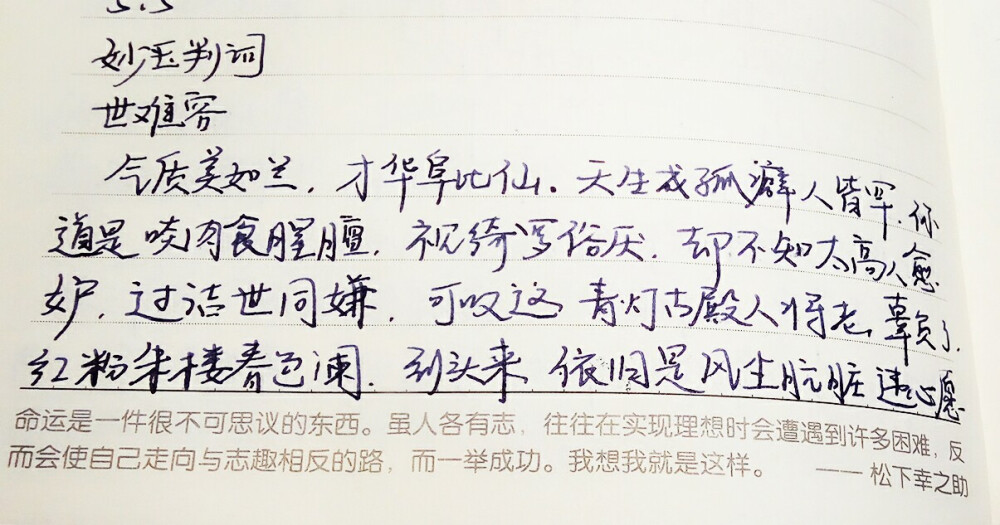 5.5
妙玉判词
世难容
气质美如兰，才华阜比仙。天生成孤癖人皆罕，你
道是啖肉食腥膻，视绮罗俗厌，却不知太高人愈
妒，过洁世同嫌，可叹这青灯古殿人将老，辜负了，
红粉朱楼春色阑，到头来依旧是风尘肮脏违心愿
命运是一件很不可思议的东西。虽人各有志，往往在实现理想时会遭遇到许多困难，反
而会使自己走向与志趣相反的路，而一举成功。我想我就是这样。 —— 松下幸之助